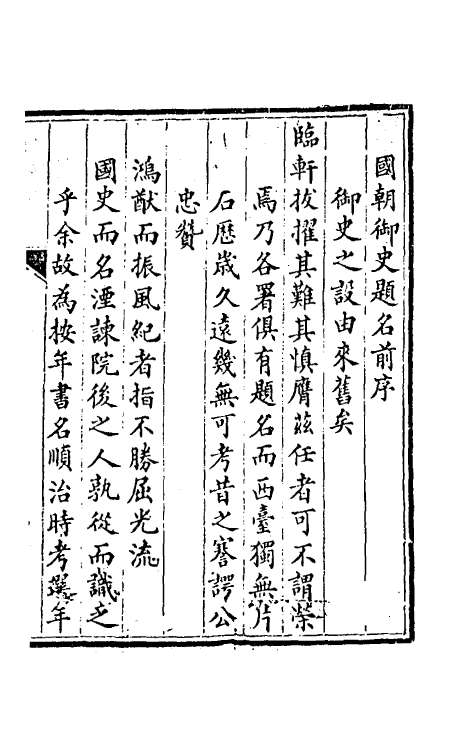 國朝御史題名前序
御史之設由來舊矣
臨軒拔擢其難其慎膺茲任者可不謂榮
焉乃各署俱有題名而西臺獨無片
石歷歲久遠幾無可考昔之謇諤公
忠贊
鴻猷而振風紀者指不勝屈光流
國史而名湮諫院後之人孰從而識之
乎余故為按年書名順治時考選年